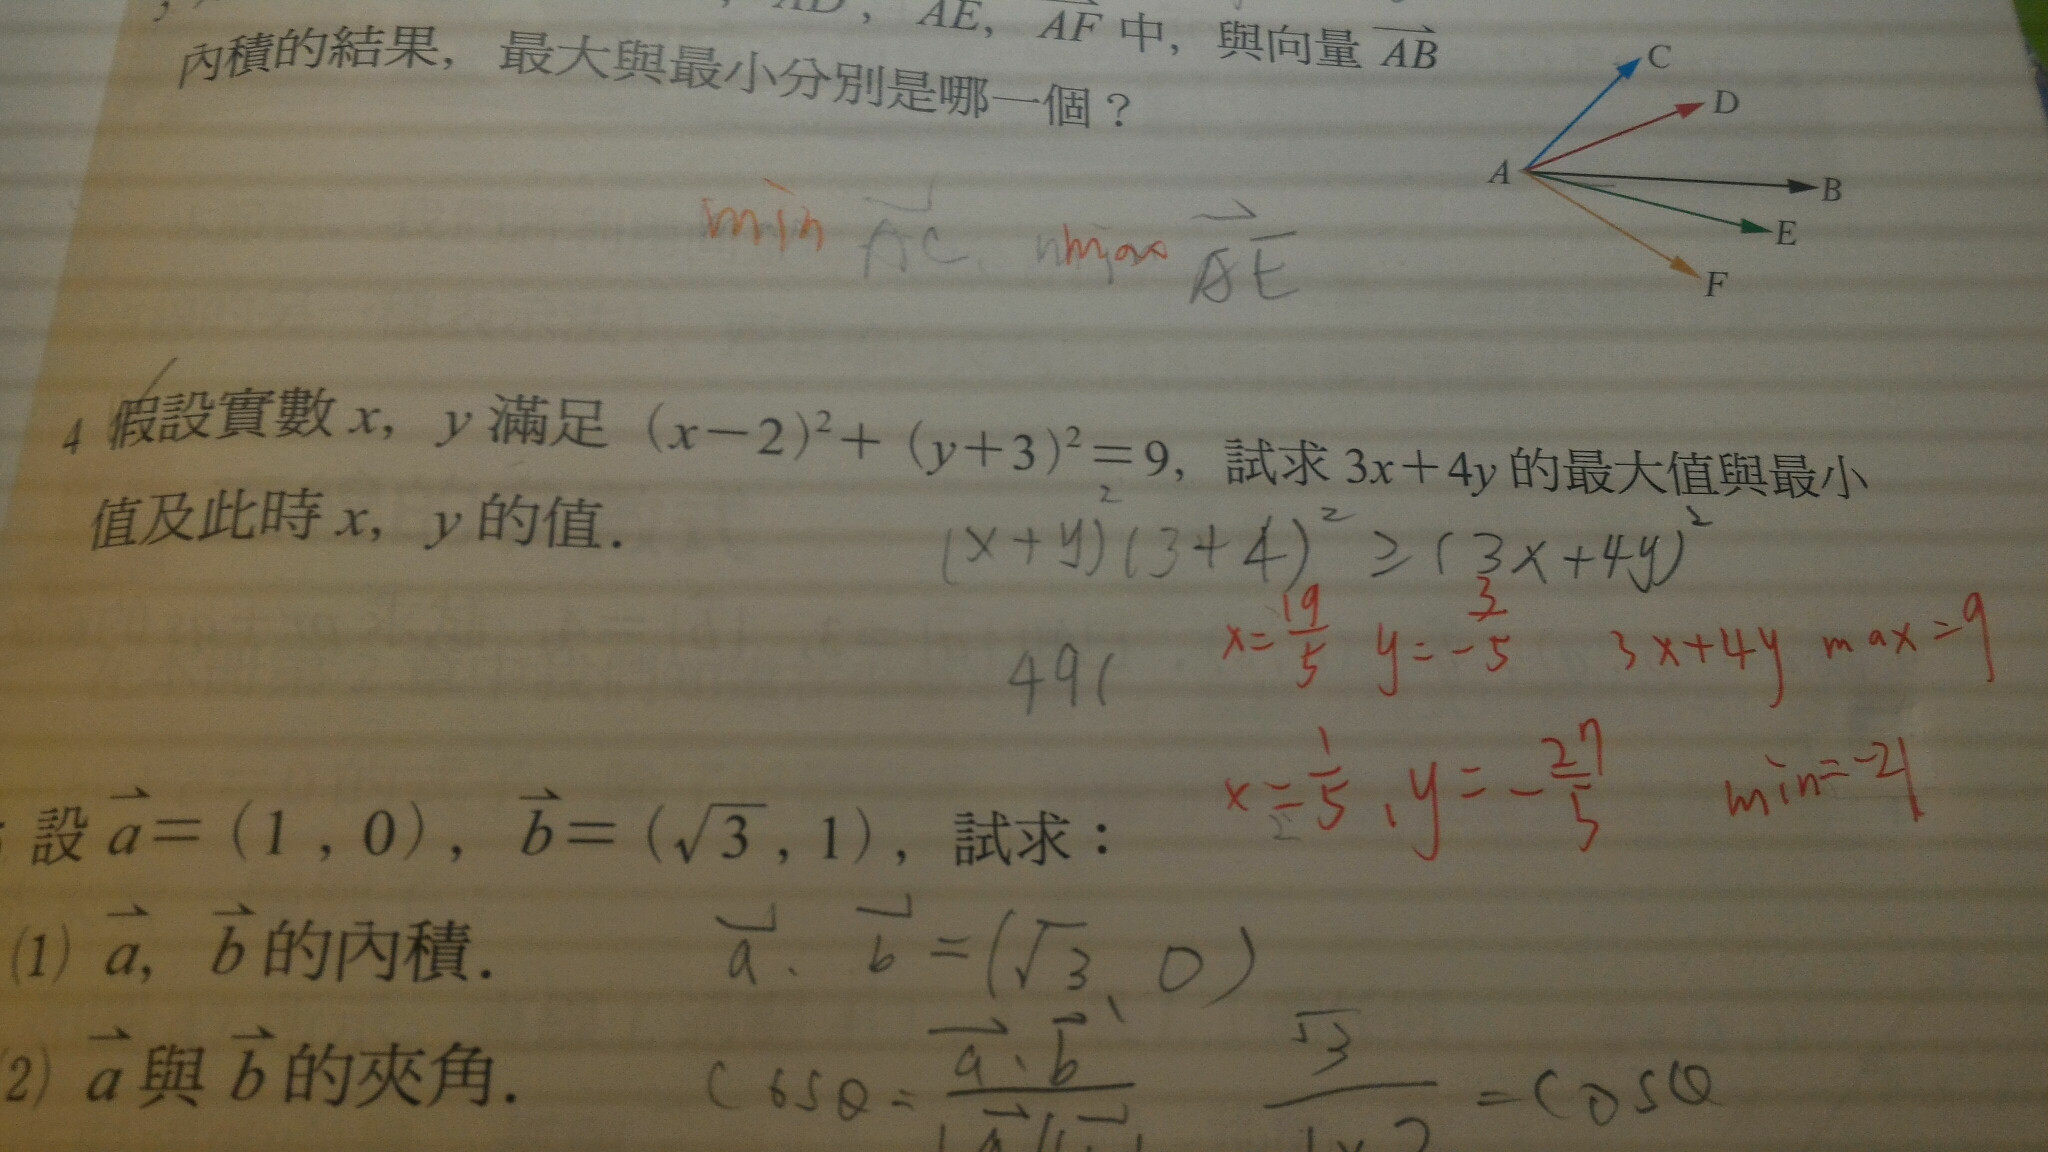 AD, AE, AF 中, 與向量 AB
內積的結果, 最大與最小分別是哪一個?
C
D
A
B
E
F
min AC, max AE
4 假設實數 x, y 滿足 (x-2)²+(y+3)²=9, 試求 3x+4y 的最大值與最小
值及此時 x, y 的值.
(x+y)²(3+4)² ≥ (3x+4y)²
x=19/5 y=-3/5 3x+4y max=9
49(
x=1/5, y=-27/5 min=-21
設 a=(1, 0), b=(√3, 1), 試求:
(1) a, b 的內積. a、b=(√3、0)
(2) a 與 b 的夾角. cosθ= a·b √3 =cosθ